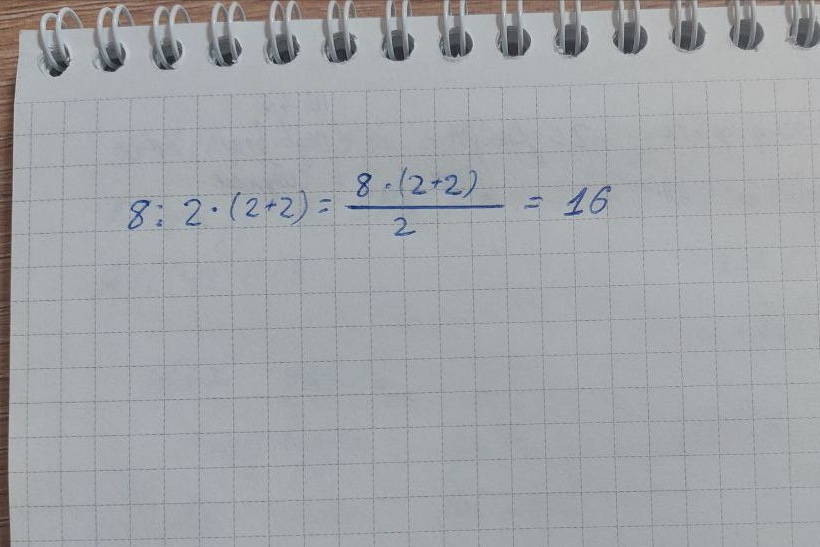 8 : 2 · (2+2) = \frac{8 · (2+2)}{2} = 16